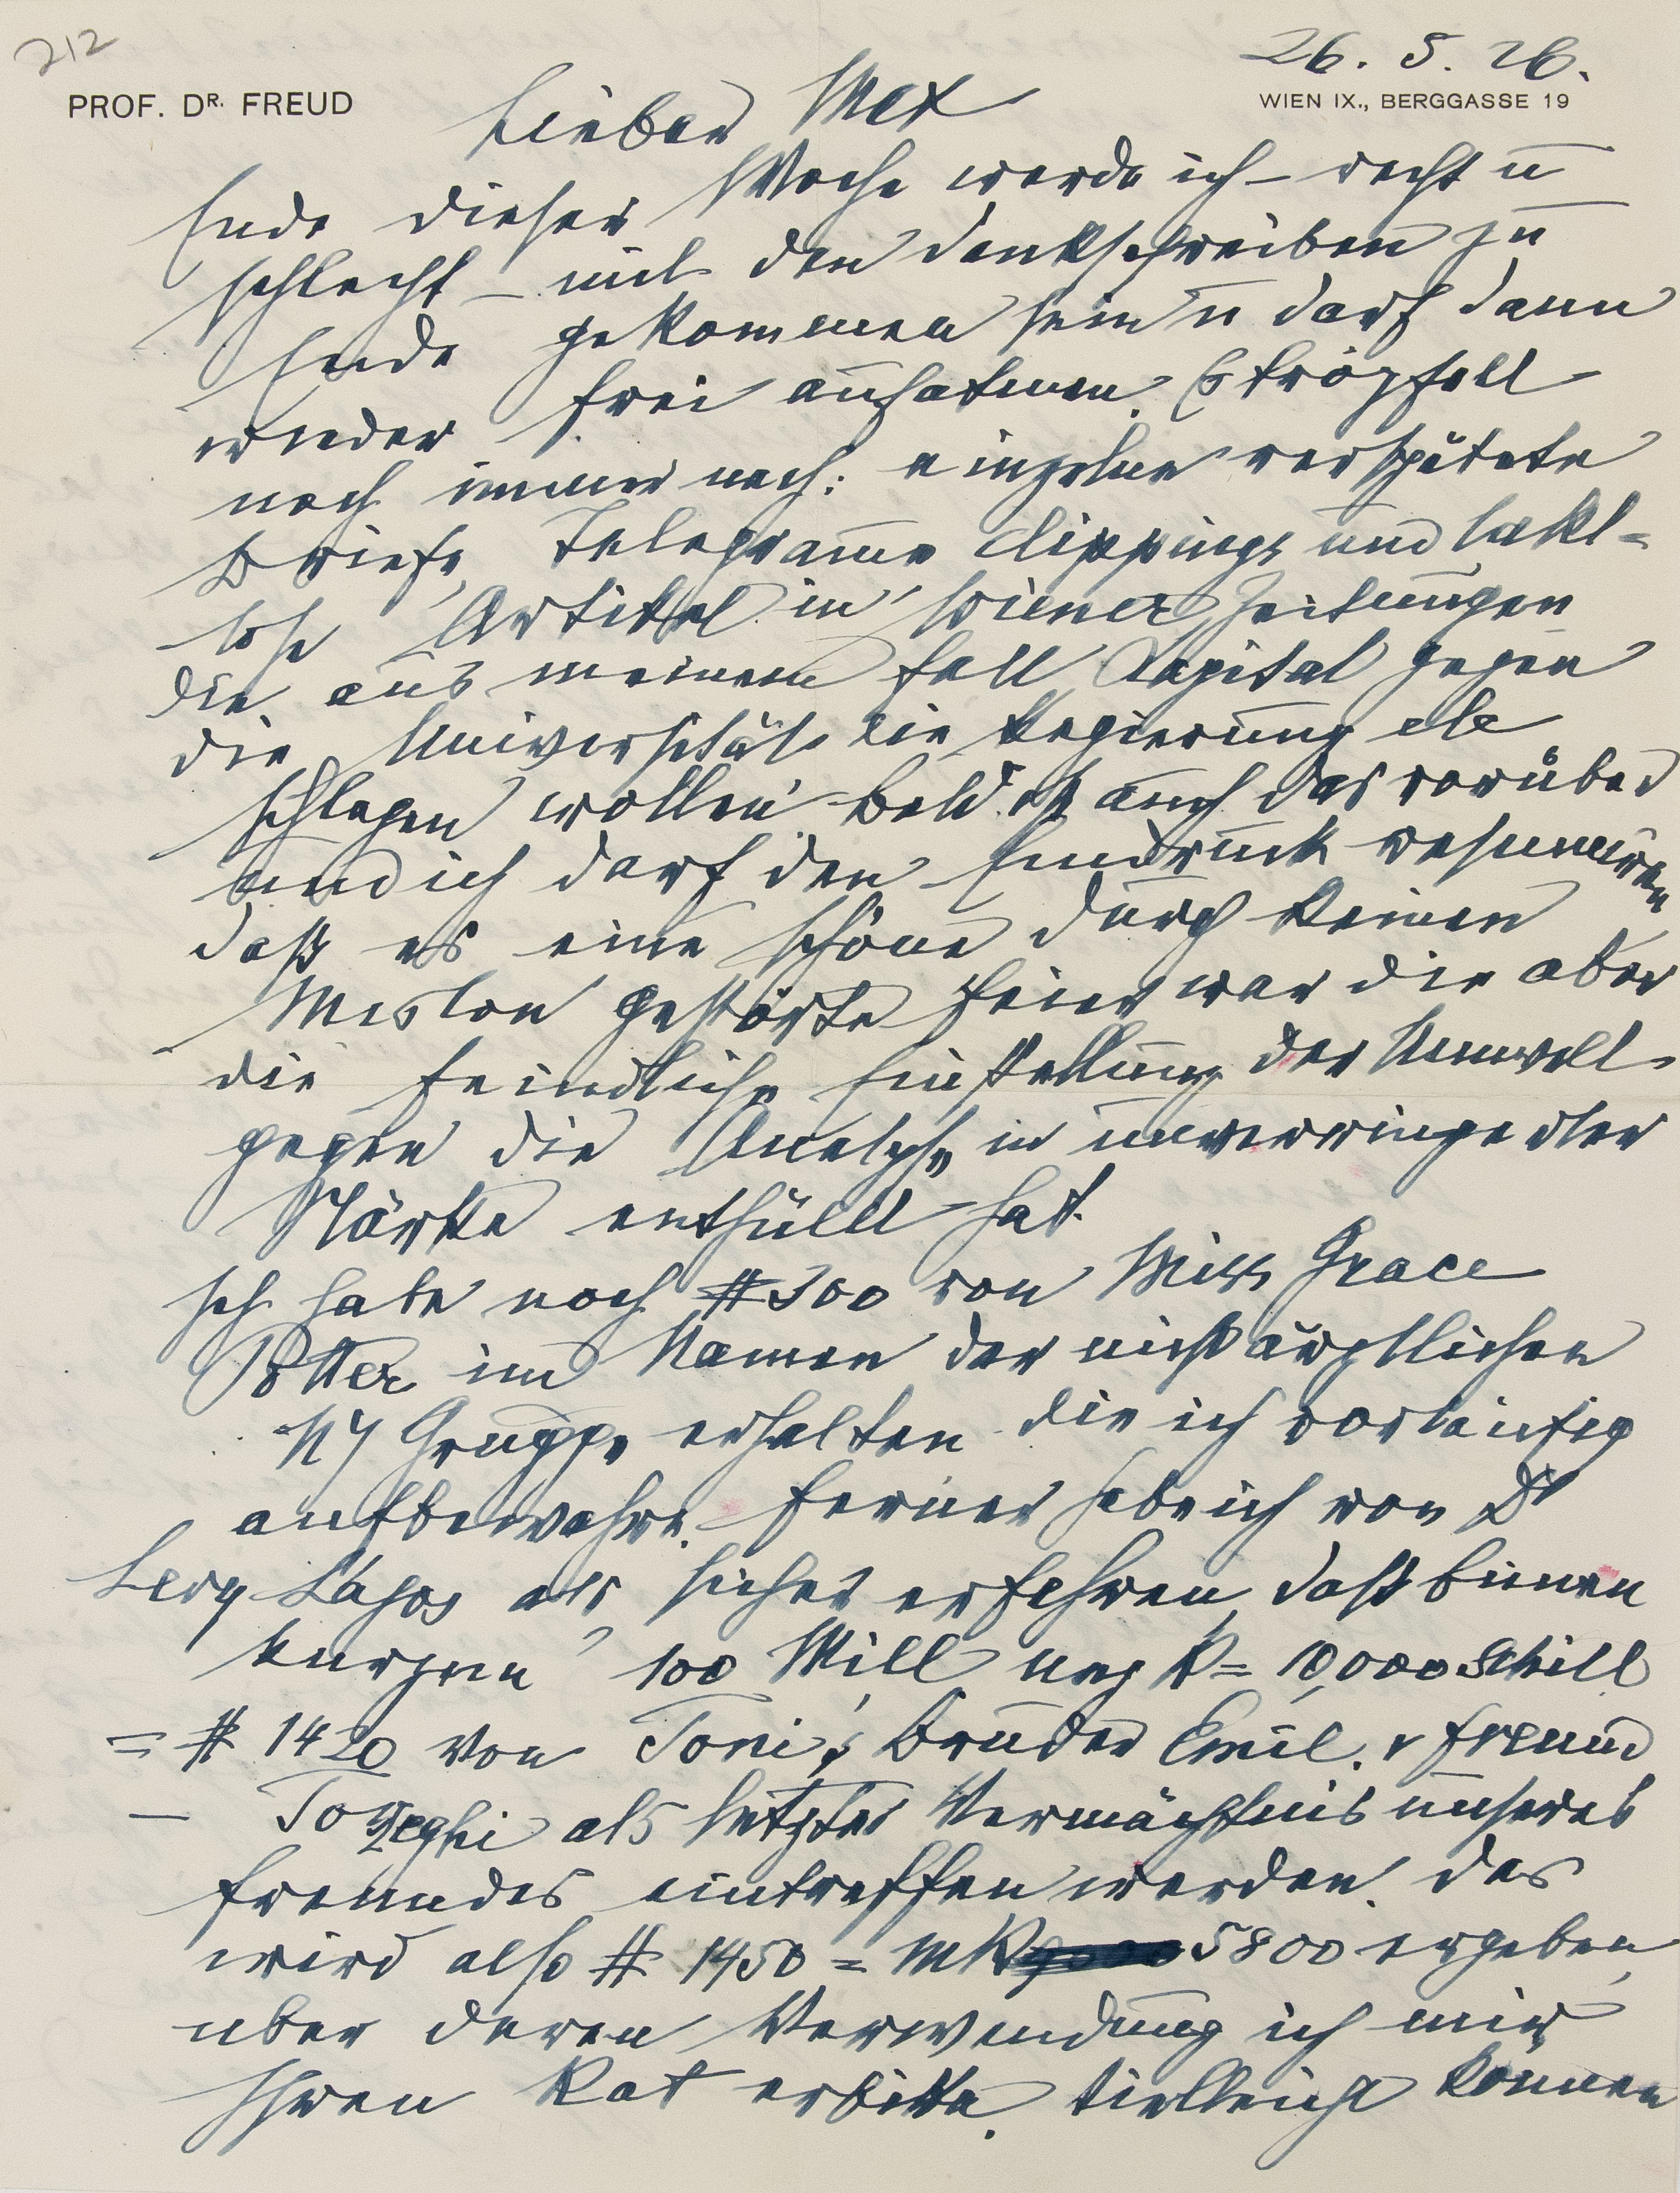 212
26. 5. 26.
PROF. DR. FREUD
WIEN IX., BERGGASSE 19
Lieber Max
Ende dieser Woche werde ich – recht u
schlecht – mit den Dankschreiben zu
Ende gekommen sein u darf dann
wieder frei aufatmen. Es tröpfelt
noch immer nach: einzelne verspätete
Briefe, Telegramme clippings und takt-
lose Artikel in Wiener Zeitungen
die aus meinem Fall Kapital gegen
die Universität, die Regierung etc
schlagen wollen. Bald ist auch das vorüber
und ich darf den Eindruck resumieren
daß es eine schöne durch keinen
Misston gestörte Feier war die aber
die feindliche Einstellung der Umwelt
gegen die Analyse in unverringerter
Stärke enthüllt hat.
Ich habe noch $ 300 von Miss Grace
Potter im Namen der nichtärztlichen
NY Gruppe erhalten die ich vorläufig
aufbewahre. Ferner habe ich von Dr
Levy Lajos als sicher erfahren, daß binnen
kurzem 100 Mill ung K = 10,000 Schill
= $ 1420 von Toni's Bruder Emil v Freund
– Toszeghi als letztes Vermächtnis unseres
Freundes eintreffen werden. Das
wird also $ 1450 = MK 5800 ergeben,
über deren Verwendung ich mir
Ihren Rat erbitte. Vielleicht können